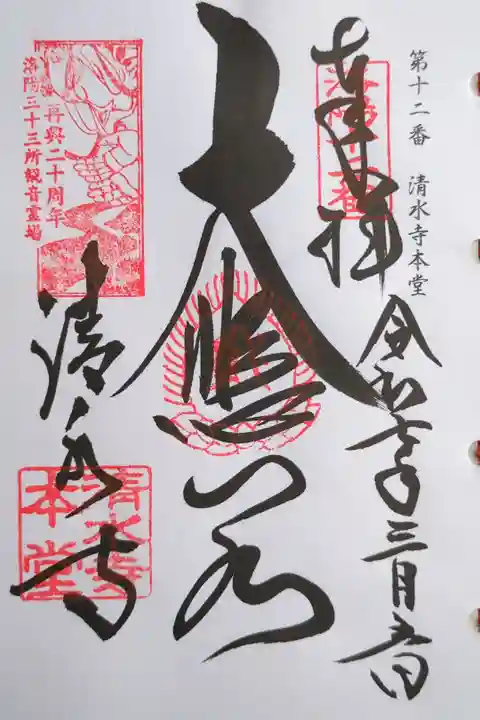 第十二番 清水寺本堂
奉拝 令和七年三月五日
洛陽十二番
大悲閣
清水寺
再興二十周年
洛陽三十三所観音霊場
清水寺
本堂